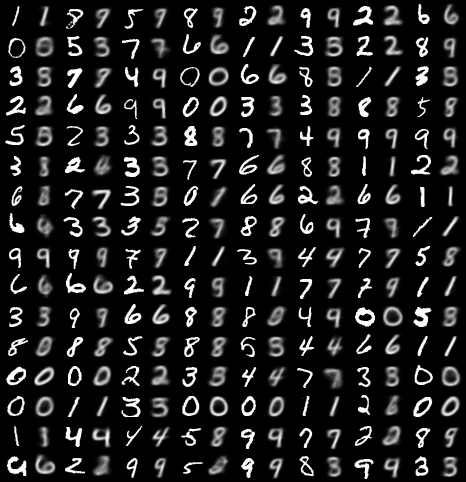 1 1 8 9 5 9 8 9 2 2 9 9 2 2 6 6
0 0 5 3 7 7 6 6 1 1 3 3 2 2 8 9
3 8 9 9 4 9 0 0 6 6 8 8 1 1 3 8
2 2 6 6 9 9 0 0 3 3 3 8 8 8 5 8
5 8 2 3 3 3 8 8 7 7 4 9 9 9 9 9
3 8 2 6 3 3 7 7 6 6 8 8 1 1 2 2
6 8 7 7 3 8 0 1 6 6 2 2 6 6 1 1
6 6 3 3 3 5 7 7 8 8 6 9 7 9 1 1
9 9 9 9 7 9 1 1 3 9 4 4 7 7 5 8
6 6 6 6 2 2 9 9 1 1 7 7 7 9 1 1
3 3 9 9 6 6 8 8 8 0 4 9 0 0 5 8
8 0 8 8 5 8 8 8 5 3 4 4 6 6 1 1
0 0 0 0 2 2 3 3 4 4 7 7 3 3 0 0
0 0 1 1 3 3 0 0 0 0 1 1 2 8 0 0
1 1 4 4 4 4 5 8 9 9 7 7 2 2 8 9
9 6 2 2 9 9 5 8 9 9 8 3 9 9 3 3